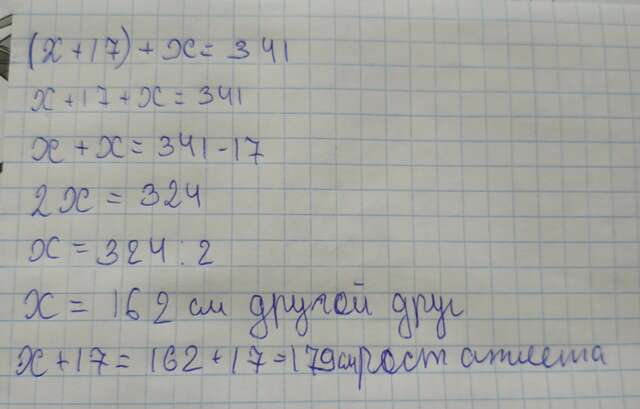 (x+17)+x=341
x+17+x=341
x+x=341-17
2x=324
x=324:2
x=162 см другой друг
x+17=162+17=179см рост атлета